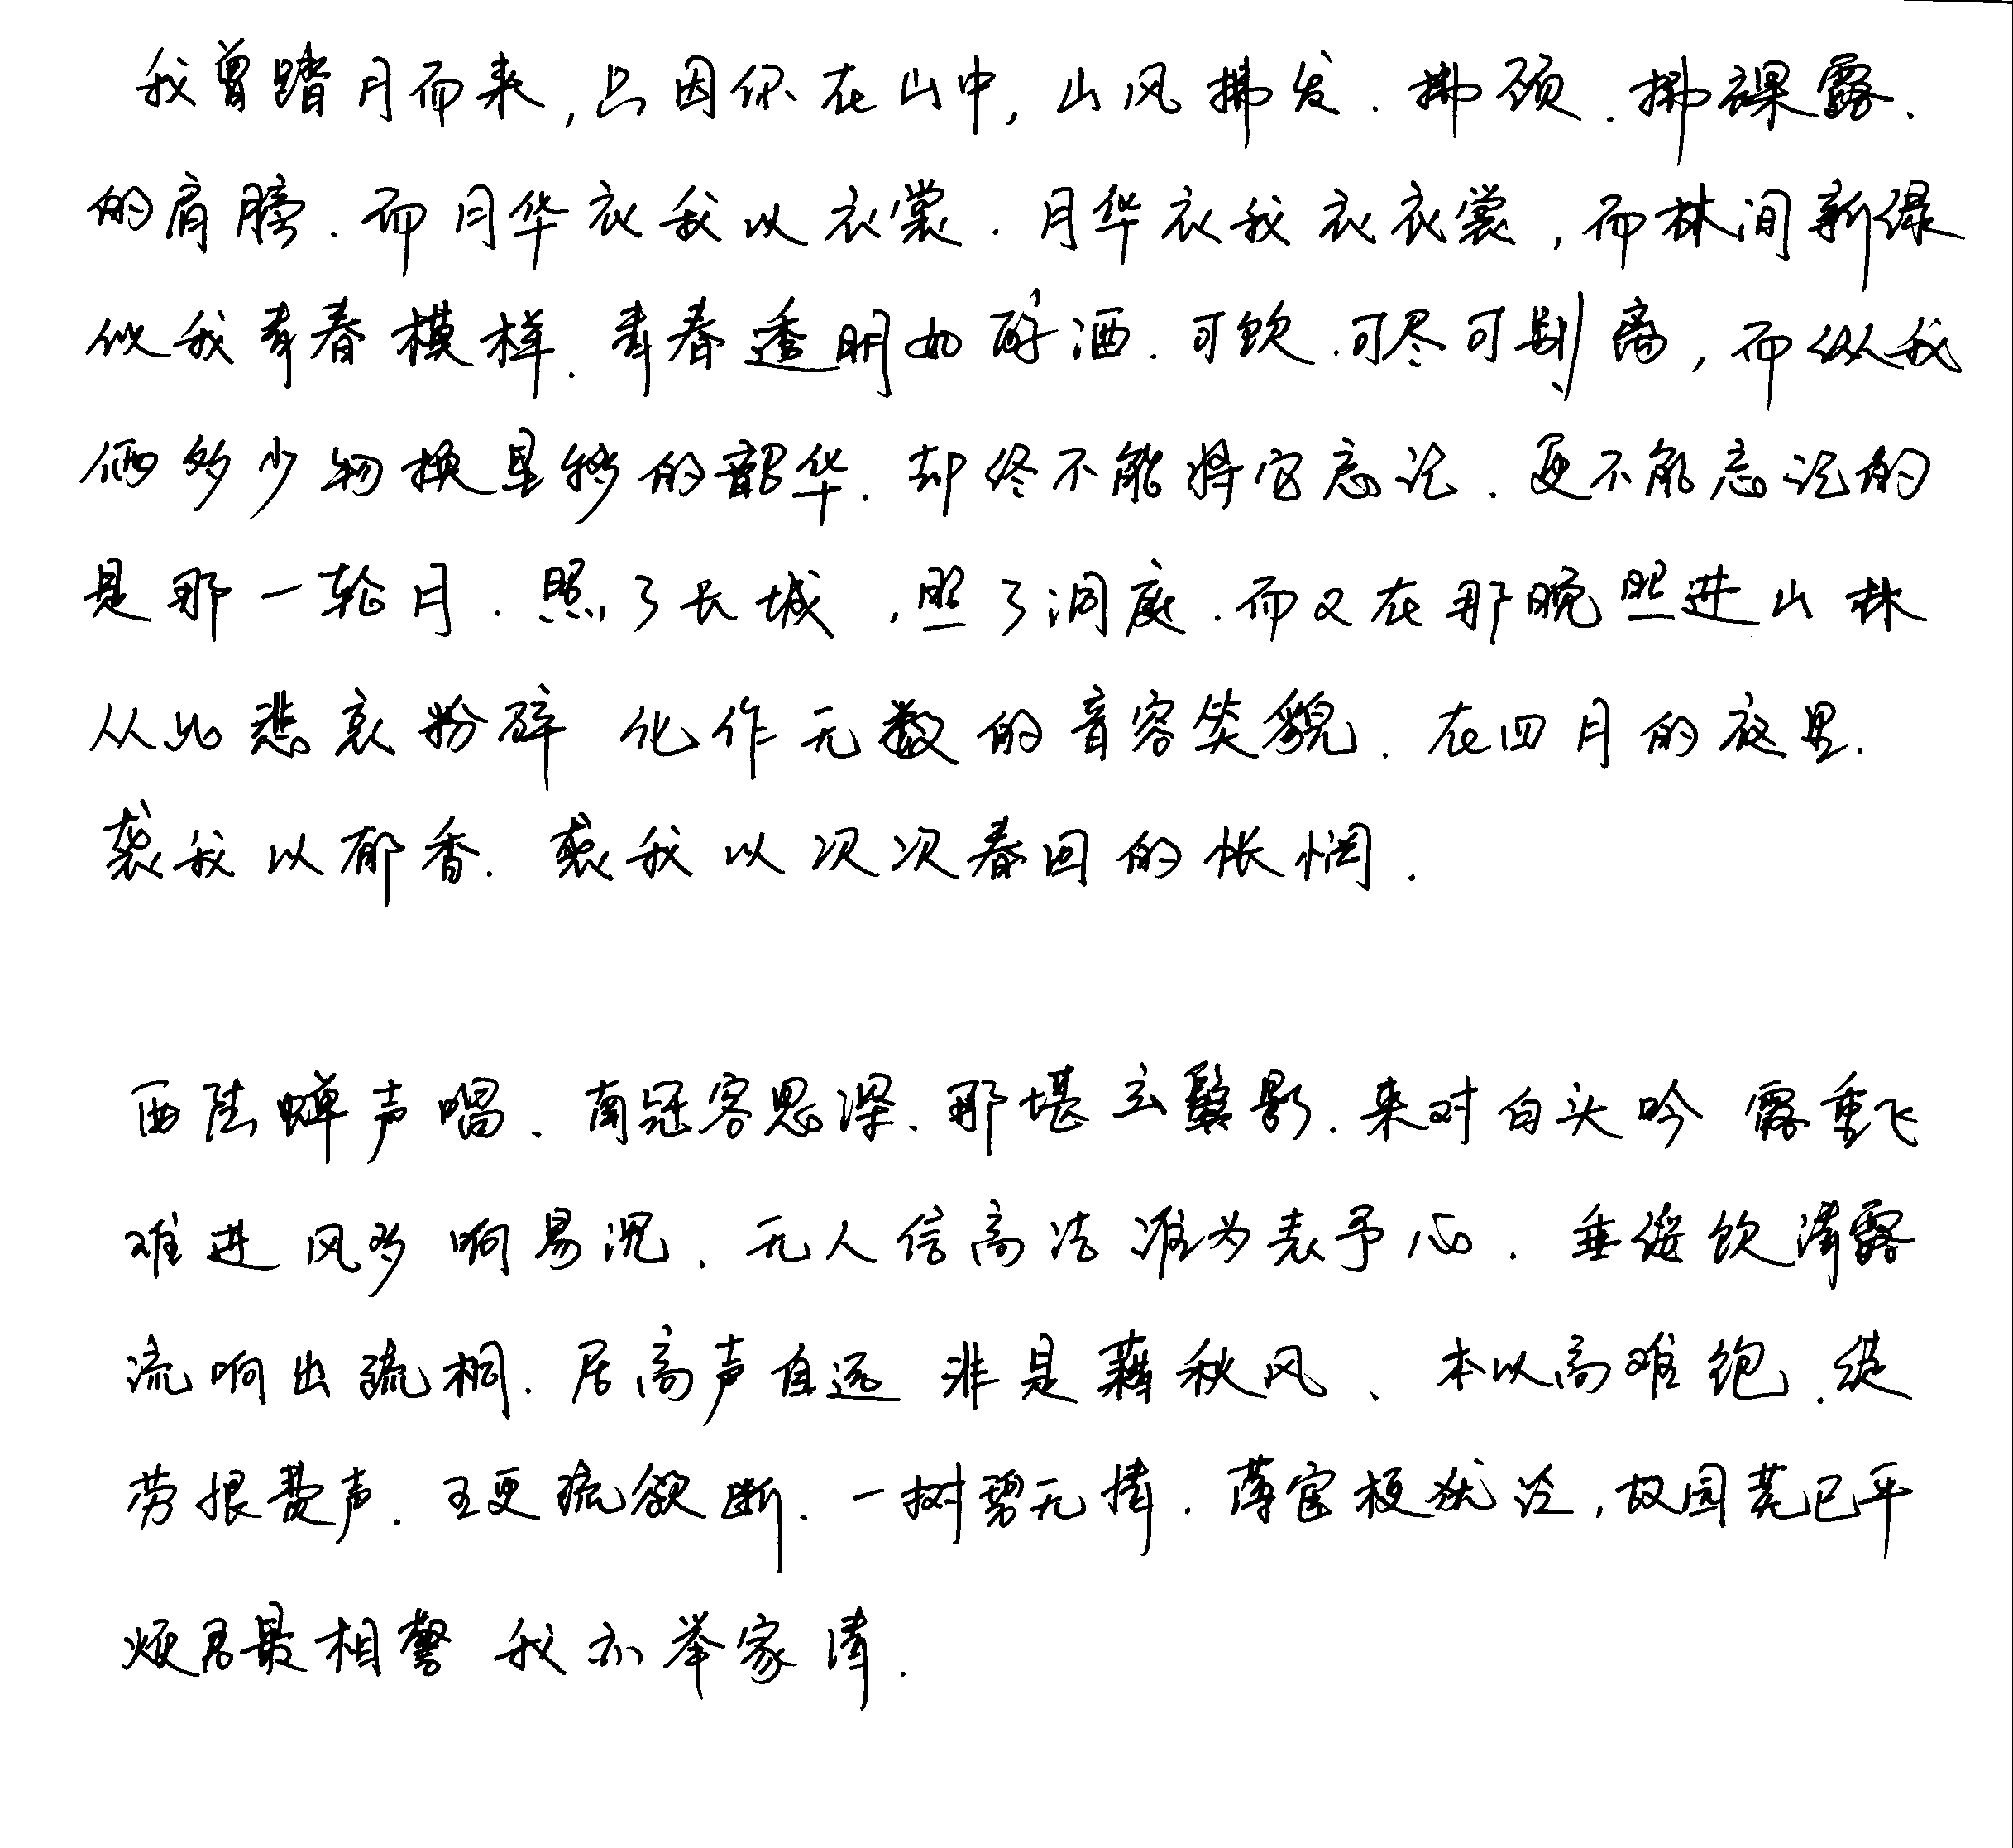 我曾踏月而来,只因你在山中,山风拂发.拂颈.拂裸露.
的肩膀.而月华衣我以衣裳.月华衣我衣衣裳,而林间新绿
似我青春模样.青春透明如醇酒.可饮.可尽可别离,而纵我
俩多少物换星移的韶华.却终不能将它忘记.更不能忘记的
是那一轮月.照了长城,照了洞庭.而又在那晚照进山林
从此悲哀粉碎 化作无数的音容笑貌.在四月的夜里.
袭我以郁香.袭我以次次春回的怅惘.
西陆蝉声唱、南冠客思深.那堪玄鬓影.来对白头吟 露重飞
难进 风多响易沉.无人信高洁 谁为表予心.垂緌饮清露
流响出疏桐.居高声自远 非是藉秋风、本以高难饱.徒
劳恨费声.五更疏欲断.一树碧无情.薄宦梗犹泛,故园芜已平
烦君最相警 我亦举家清.